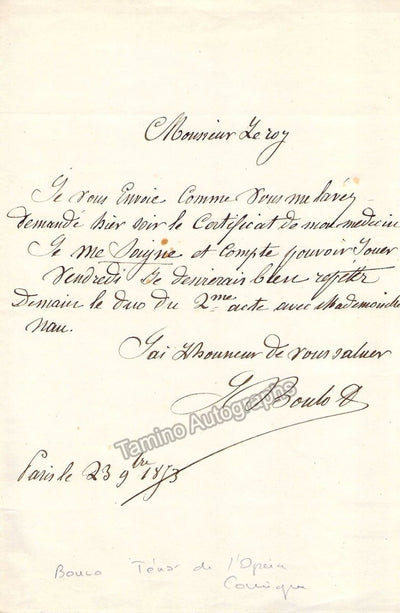 Monsieur Leroy
Je vous Envoie Comme Vous me lavéz
demandé hier soir le Certificat de mon medecin
Je me Soigne et Compte pouvoir Jouer
Vendredi Je desirerais bien repetter
Demain le duo du 2me acte avec Mademoiselle
nau.
Jai Lhonneur de vous saluer
Boulo
Tamino Autographs
Paris le 23 9bre 1853
Ténor de l'Opéra
Comique